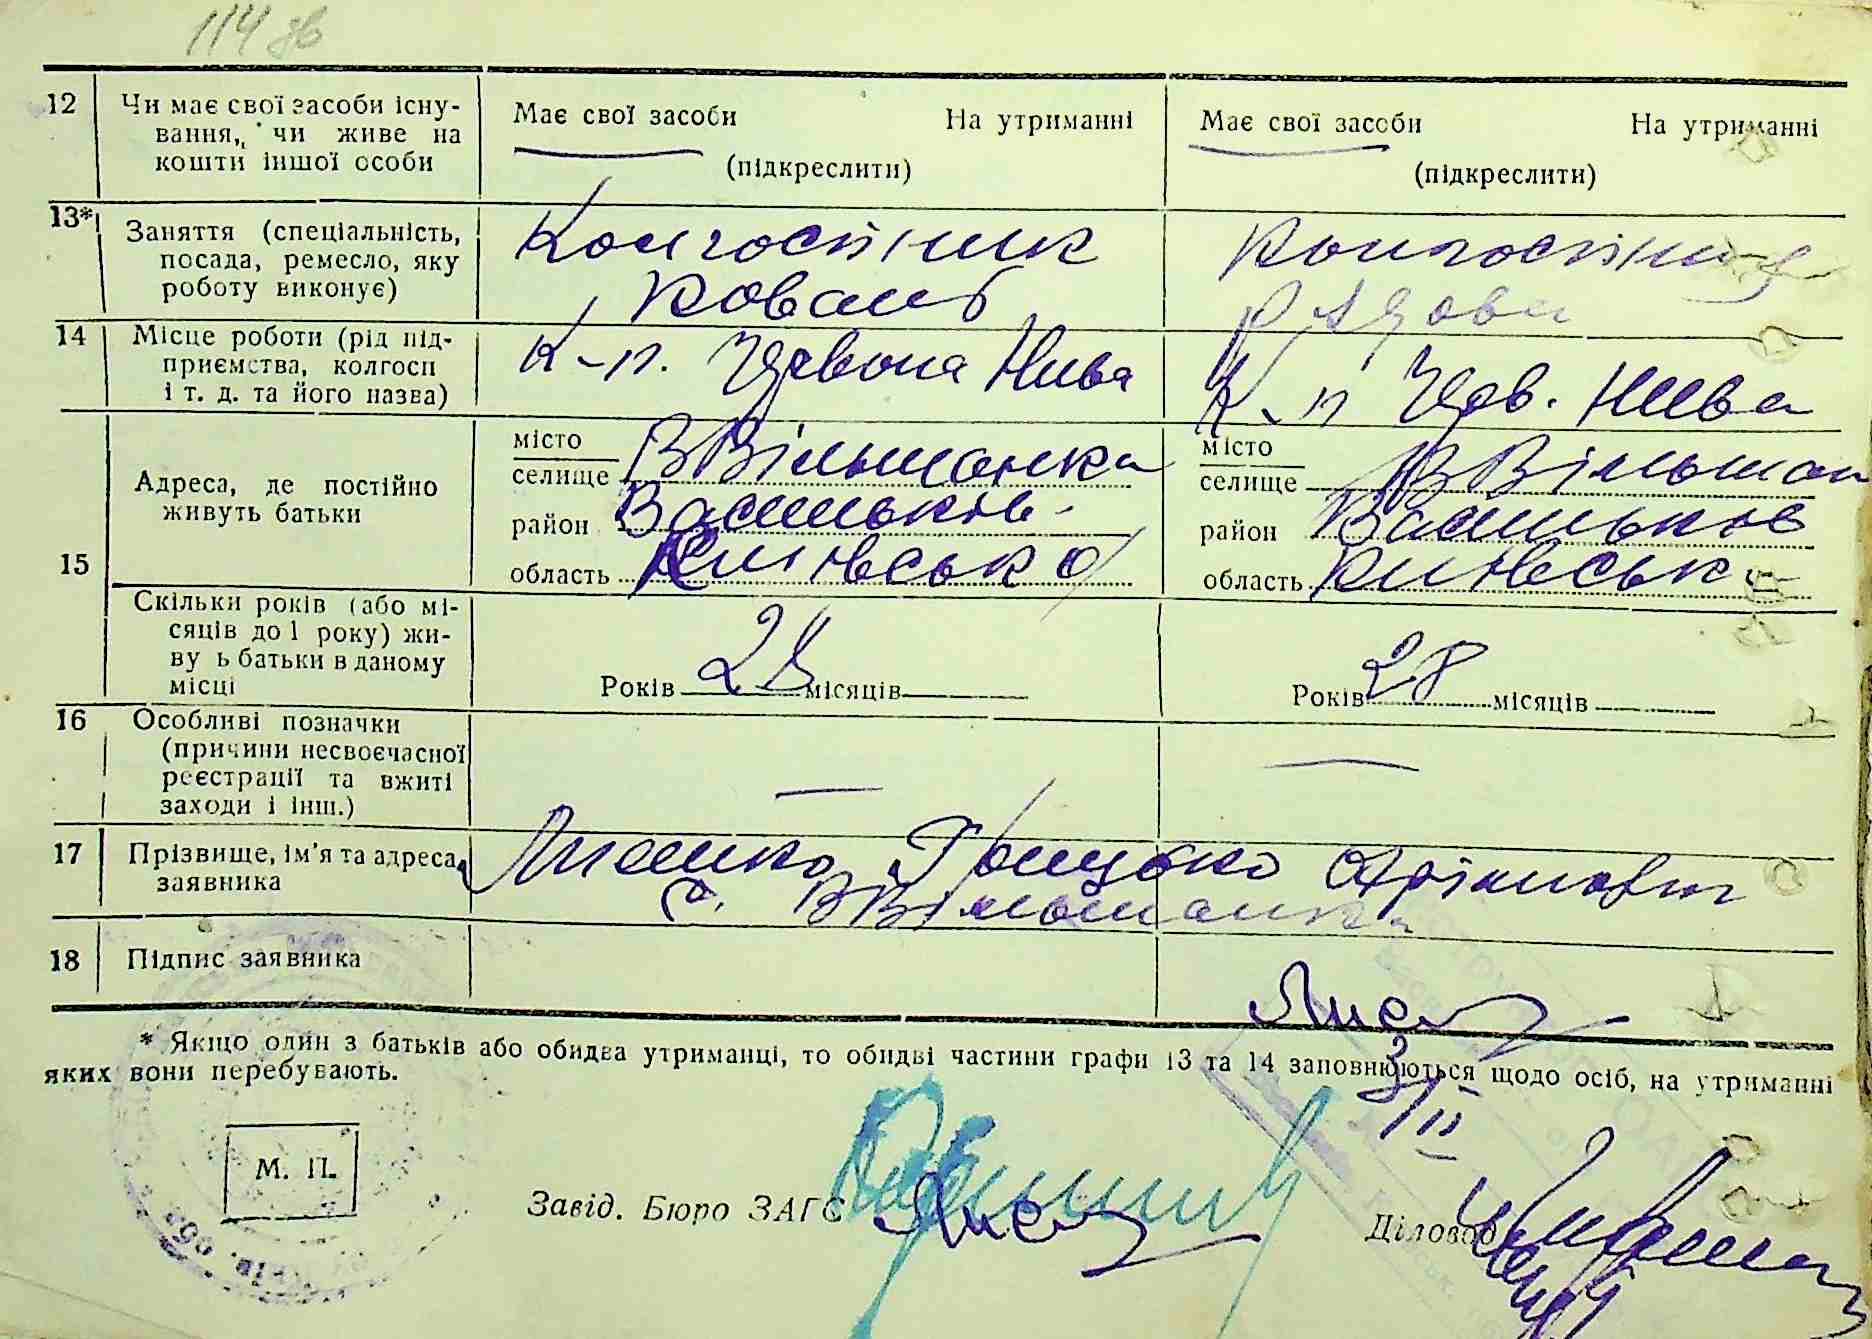 114 зв
12 Чи має свої засоби існу- Має свої засоби На утриманні Має свої засоби На утриманні
вання, чи живе на
кошти іншої особи (підкреслити) (підкреслити)
13* Заняття (спеціальність, Колгоспник Колгоспниця
посада, ремесло, яку
роботу виконує) Коваль Рядова
14 Місце роботи (рід під- К-п. Червона Нива К-п Черв. Нива
приємства, колгосп
і т. д. та його назва)
15 Адреса, де постійно
живуть батьки
місто місто
селище ВВільшанка селище ВВільшан
район Васильків. район Васильків
область Київської область Київськ
Скільки років (або мі-
сяців до 1 року) жи-
ву ь батьки в даному
місці Років 28 місяців Років 28 місяців
16 Особливі позначки
(причини несвоєчасної
реєстрації та вжиті
заходи і інш.)
17 Прізвище, ім'я та адреса Грицько
заявника с. ВВільшанка
18 Підпис заявника
* Якщо один з батьків або обидва утриманці, то обидві частини графи 13 та 14 заповнюються щодо осіб, на утриманні
яких вони перебувають.
3/II
М. П.
Завід. Бюро ЗАГС Діловод